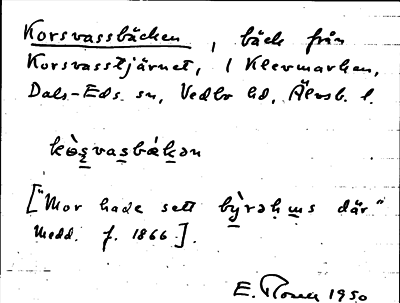 Korsvassbäcken, bäck från
Korsvasstjärnet, i Klevmarken,
Dals-Eds sn, Vedbo hd, Älvsb. l.
["Mor hade sett där"
Medd. f. 1866].
E. 1950